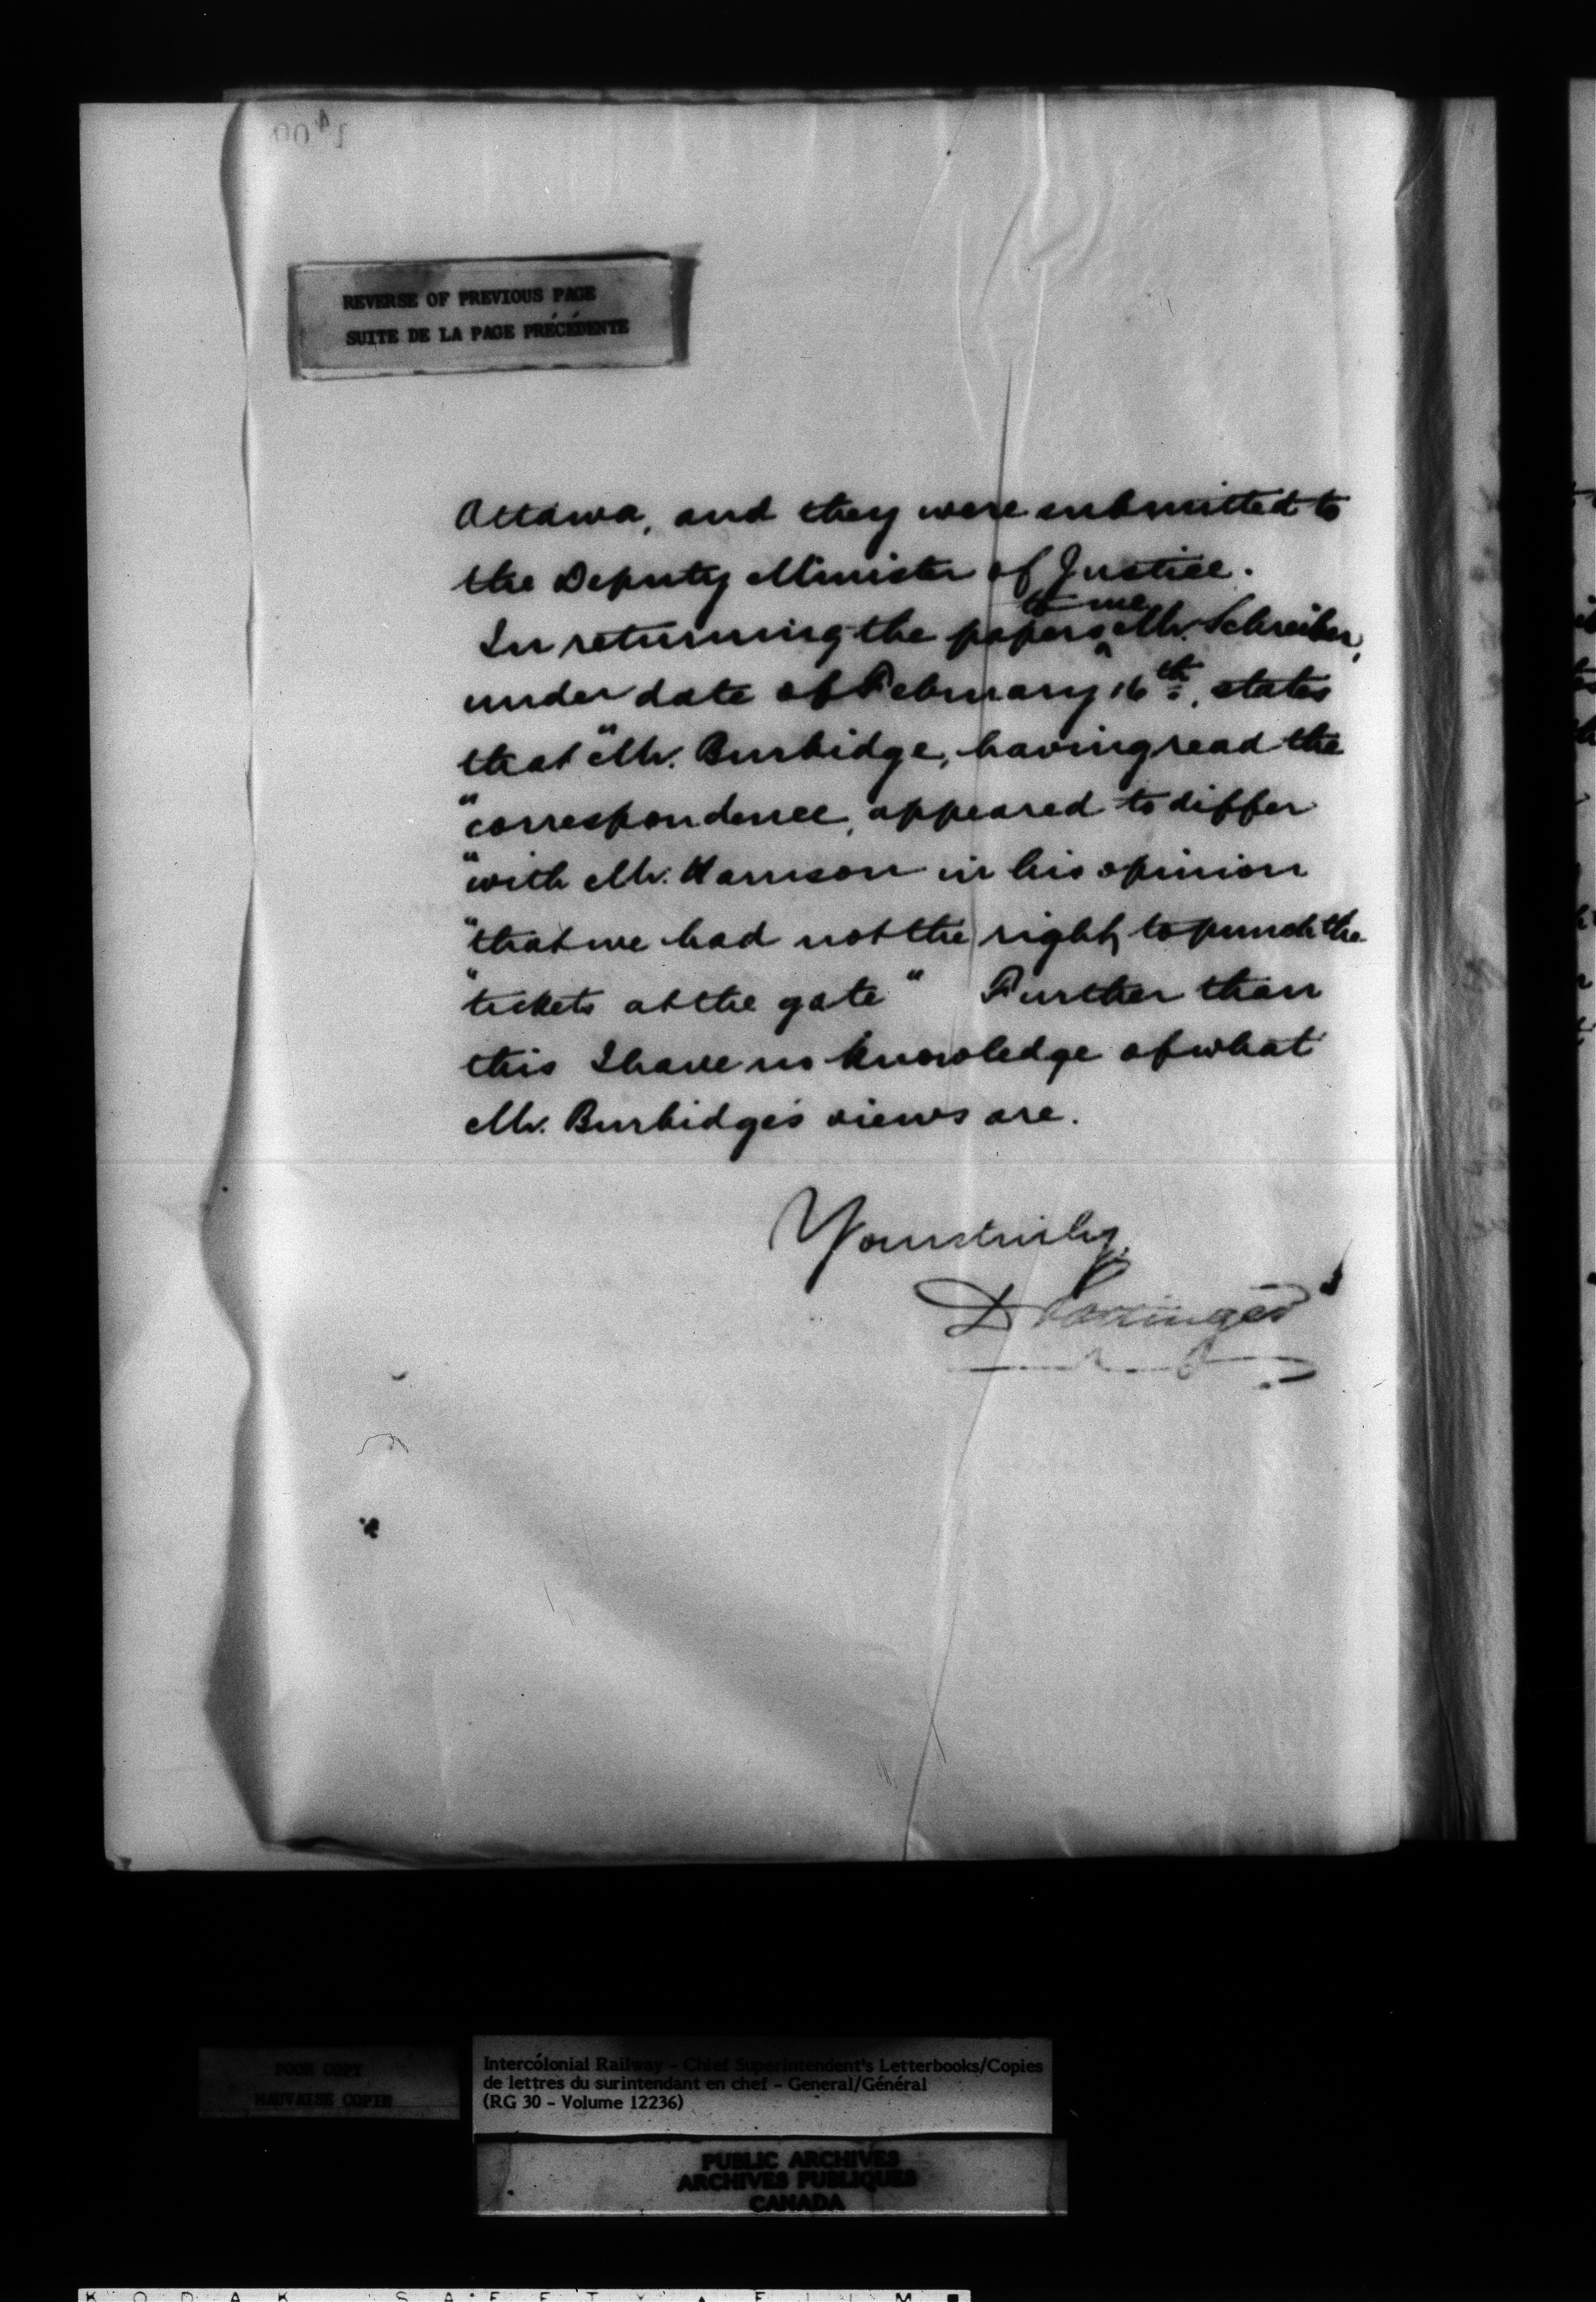 REVERSE OF PREVIOUS PAGE
SUITE DE LA PAGE PRÉCÉDENTE
Ottawa, and they were submitted to
the Deputy Minister of Justice.
to me
In returning the papers ^ Mr. Schreiber,
under date of February 16th, states
that "Mr. Burbidge, having read the
"correspondence, appeared to differ
"with Mr. Harrison in his opinion
"that we had not the right to punch the
"tickets at the gate" Further than
this I have no knowledge of what
Mr. Burbidge's views are.
Yours truly
D Pottinger
POOR COPY
MAUVAISE COPIE
Intercolonial Railway - Chief Superintendent's Letterbooks/Copies
de lettres du surintendant en chef - General/Général
(RG 30 - Volume 12236)
PUBLIC ARCHIVES
ARCHIVES PUBLIQUES
CANADA
KODAK SAFETY FILM